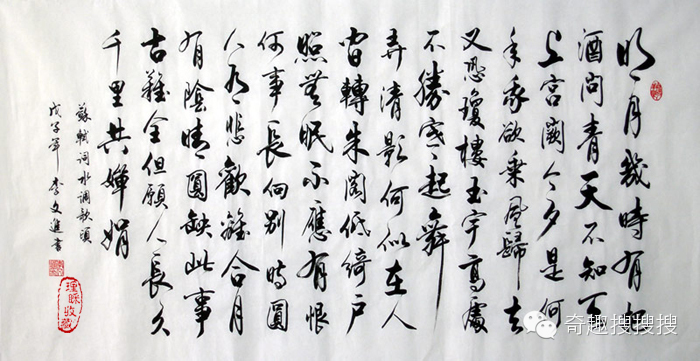 明月幾時有把
酒問青天不知天
上宮闕今夕是何
年我欲乘風歸去
又恐瓊樓玉宇高處
不勝寒起舞
弄清影何似在人
間轉朱閣低綺戶
照無眠不應有恨
何事長向別時圓
人有悲歡離合月
有陰晴圓缺此事
古難全但願人長久
千里共嬋娟
蘇軾词水调歌頭
戊子年 李文進書
收藏
奇趣搜搜搜